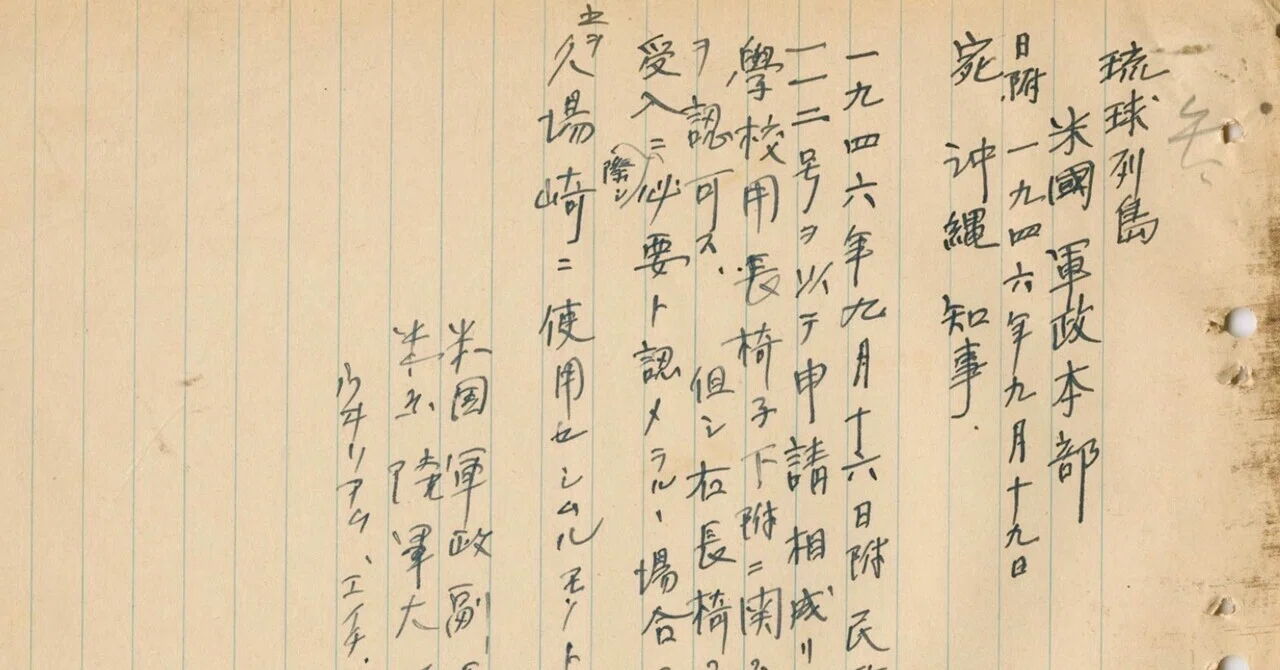 琉球列島
米國軍政本部
日附 一九四六年九月十九日
宛 沖縄知事.
一九四六年九月十六日附民
一一二号ヲ以テ申請相成リ
學校用長椅子下附ニ関
ヲ認可ス. 但シ右長椅
受入ニ必要ト認メラルヽ場合
際シ
之ヲ久場崎ニ使用セシムルモノト
米国軍政副
米国陸軍大
ウヰリアム、エイチ.